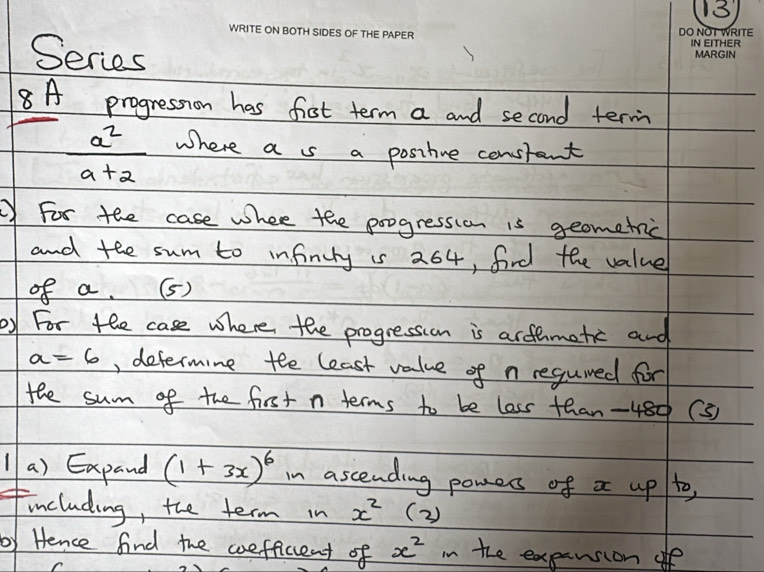 13
WRITE ON BOTH SIDES OF THE PAPER
DO NOT WRITE
IN EITHER
MARGIN
Series
8 A progression has first term a and second term
a²
a+2 where a is a positive constant
For the case where the progression is geometric
and the sum to infinity is 264, find the value
of a. (5)
b) For the case where the progression is arithmetic and
a = 6, determine the least value of n required for
the sum of the first n terms to be less than -480 (3)
1 a) Expand (1 + 3x)⁶ in ascending powers of x up to,
including, the term in x² (2)
b) Hence find the coefficient of x² in the expansion of